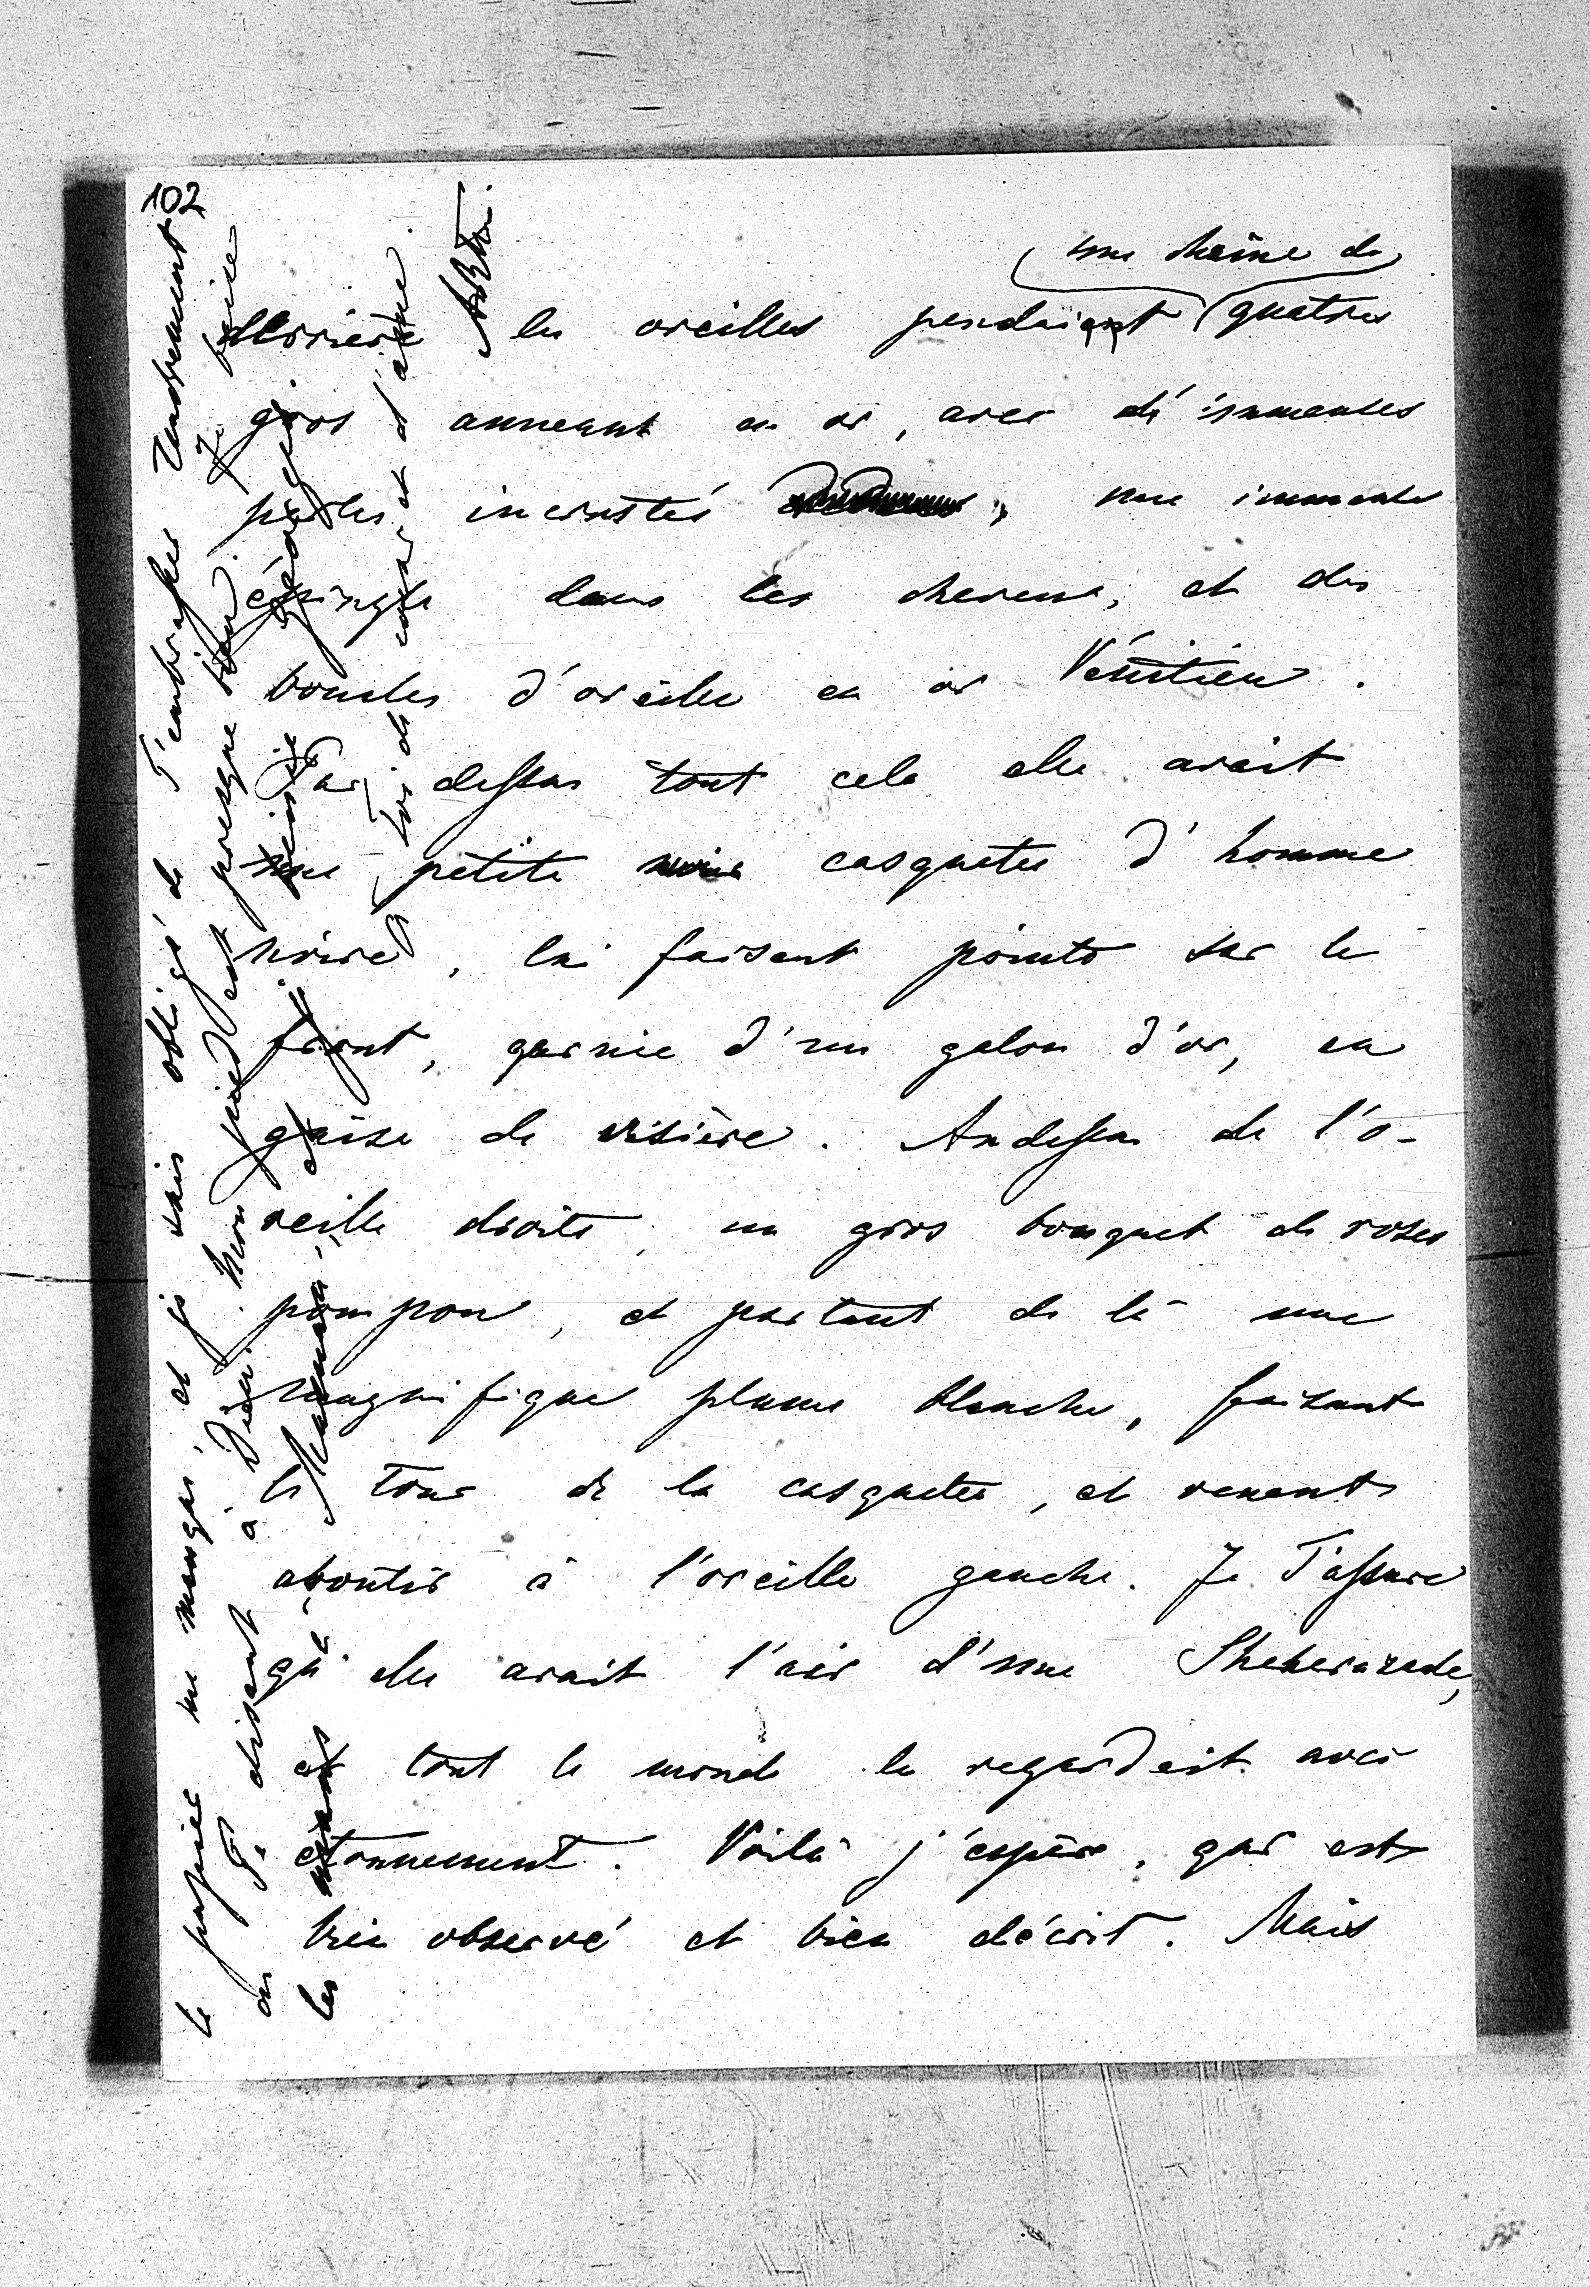 102
une chaîne de
derrière les oreilles pendaient quatres
gros anneaux en or, avec d'immenses
perles incrustés, une immense
épingle dans les cheveux, et des
boucles d'oreille en or Vénitien.
Par dessus tout cela elle avait
une petite casquette d'homme
noire, lui faisant pointe sur le
front, garnie d'un galon d'or, en
guise de visière. Audessus de l'o-
reille droite, un gros bouquet de roses
pompon, et partant de là une
magnifique plume blanche, faisant
le tour de la casquette, et venant
aboutir à l'oreille gauche. Je T'assure
qu'elle avait l'air d'une Sheherazade,
et tout le monde la regardait avec
étonnement. Voilà j'espère, qui est
bien observé et bien décrit. Mais
le papier me manque, et je suis obligé de T'embrasser tendrement
en Te disant à Dieu. Mon pied est presque bien. Je
les mains
toi de cœur et d'âme.